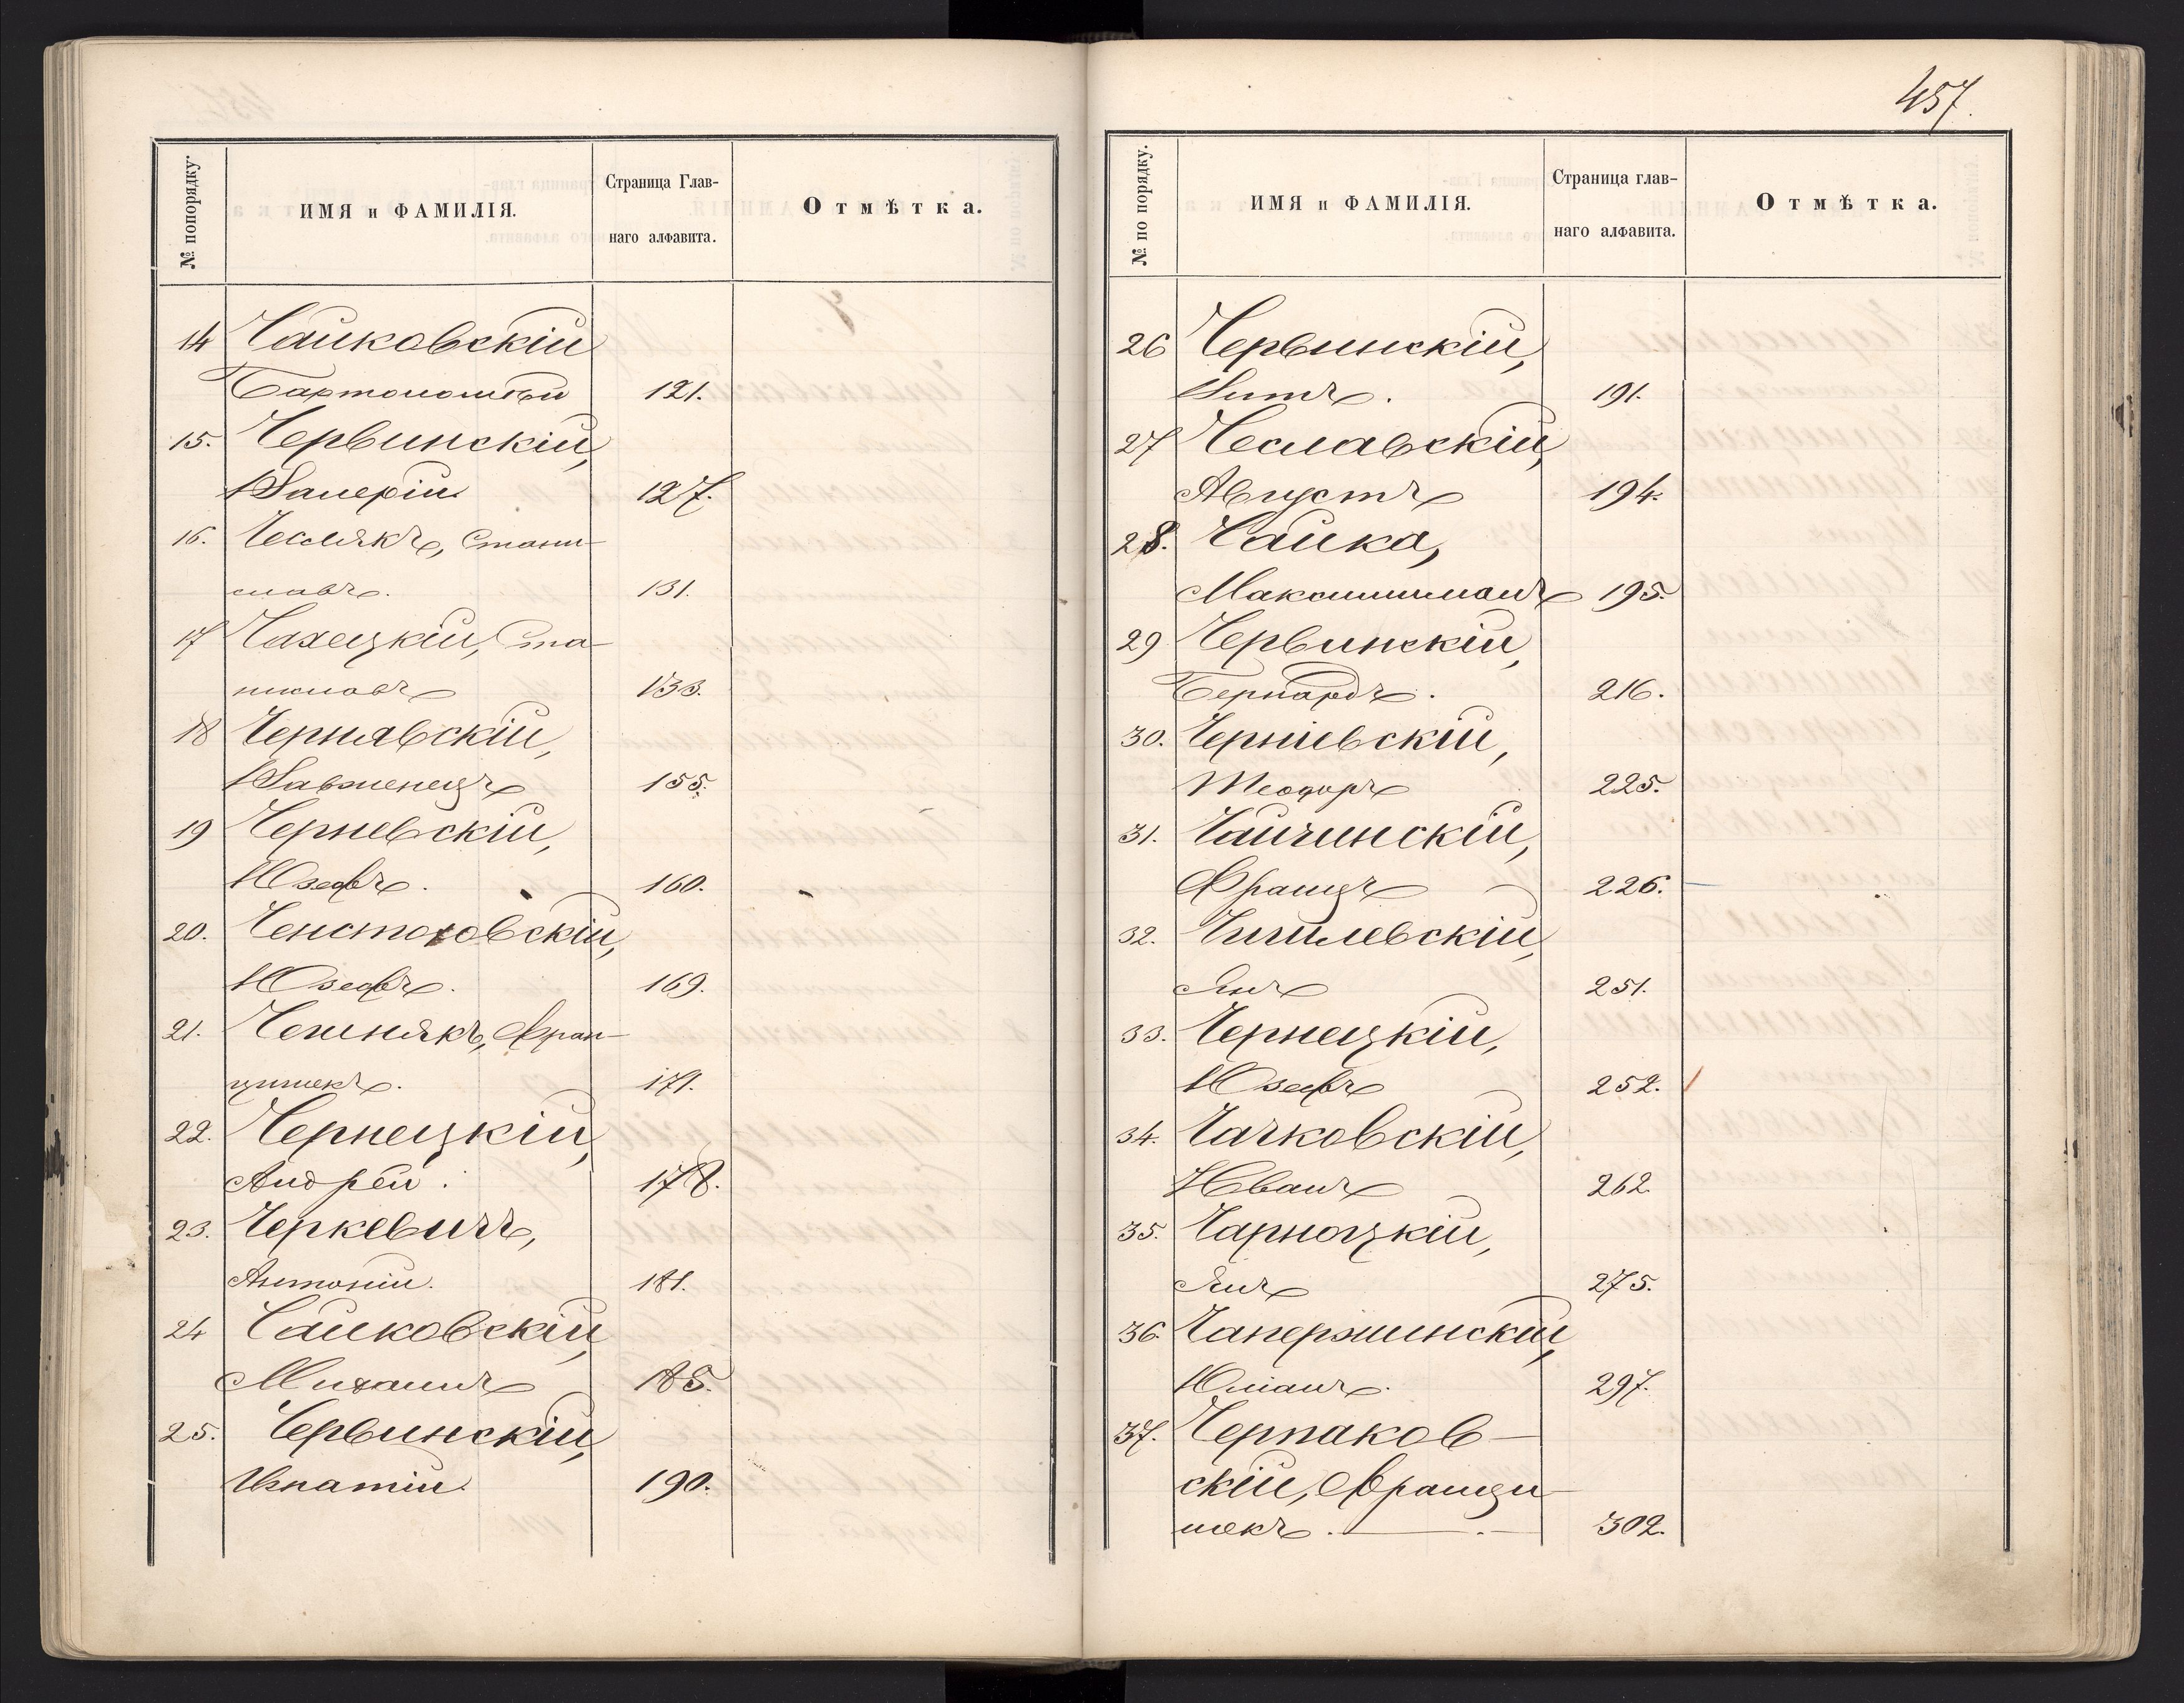 № попорядку.
ИМЯ и ФАМИЛІЯ.
Страница Глав-
наго алфавита.
Отмѣтка.
14 Чайковскій
Бартоломѣй 121.
15. Червинскій,
Валерій 127.
16. Чеслякъ, Стани-
славъ. 131.
17 Чахецкій, Ста-
ниславъ 133.
18 Чернявскій,
Вавженецъ 155.
19 Черневскій,
Юзефъ. 160.
20. Ченстоховскій,
Юзефъ. 169.
21. Чешнякъ, Фран-
цишекъ. 171.
22. Чернецкій,
Андрей. 178.
23. Черкевичъ,
Антоній. 181.
24 Чайковскій,
Михаилъ 185.
25. Червинскій,
Игнатій 190.
457.
№ по порядку.
ИМЯ и ФАМИЛІЯ.
Страница глав-
наго алфавита.
Отмѣтка.
26 Червинскій,
Витъ. 191.
27 Чеславскій,
Августъ 194.
28. Чайка,
Максимиліанъ 195.
29 Червинскій,
Бернардъ. 216.
30. Черніевскій,
Теофиръ 225.
31. Чайчинскій,
Францъ 226.
32. Чигилевскій,
Янъ 251.
33. Чернецкій,
Юзефъ 252.
34. Чачковскій,
Иванъ 262.
35. Чарноцкій,
Янъ 275.
36. Чапержинскій,
Юліанъ. 297.
37. Черпаков-
скій, Францы-
шекъ. 302.